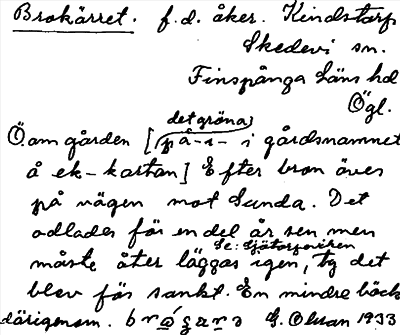 Brokärret. f.d. åker. Kindstorp
Skedevi sn.
Finspånga läns hd
Ögl.
det gröna
Ö. om gården [på -r- i gårdsnamnet
å ek-kartan] Efter bron över
på vägen mot Sanda. Det
odlades för en del år sen men
måste åter läggas igen, ty det
blev för sankt. En mindre bäck
därigenom. G. Olsson 1933